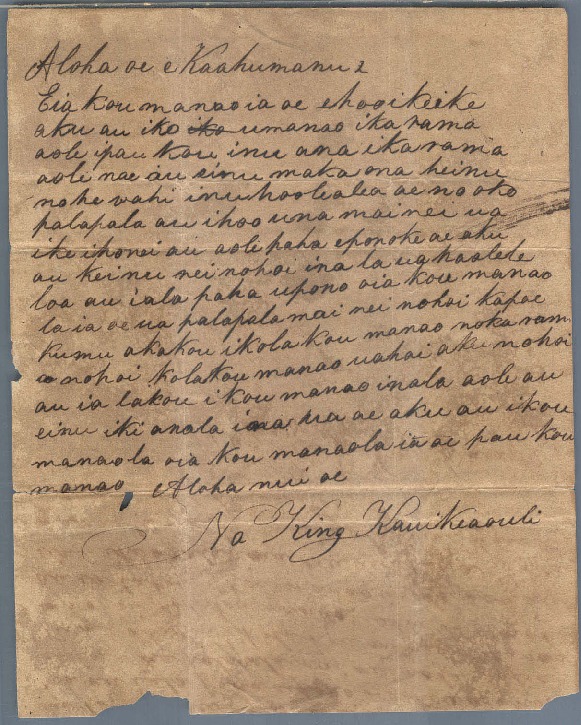 Aloha oe e Kaahumanu 2
Eia kou manao ia oe ehooikeike
aku au iko iko umanao ika rama
aole ipau kou inu ana ika rama
aoli nae au sinu maka ona heinu
nohe wahi inu hoolealea ae no oko
palapala au ihoo una mai nei ua
ike ihonei au aole paha eponoke ae aku
au keinu nei nohoi ina la ua haalele
loa au iala paha upono oia kou manao
la ia oe ua palapala mai nei nohoi kapoe
kumu akakou ikola kou manao noka ram
nohoi kolakou manao uahai aku nohoi
au ia lakou ikou manao inala aole au
einu iki anala ina hua ae aku au ikou
manaola oia kou manaola ia oe pau kou
manao Aloha nui oe
Na King Kauikeaouli